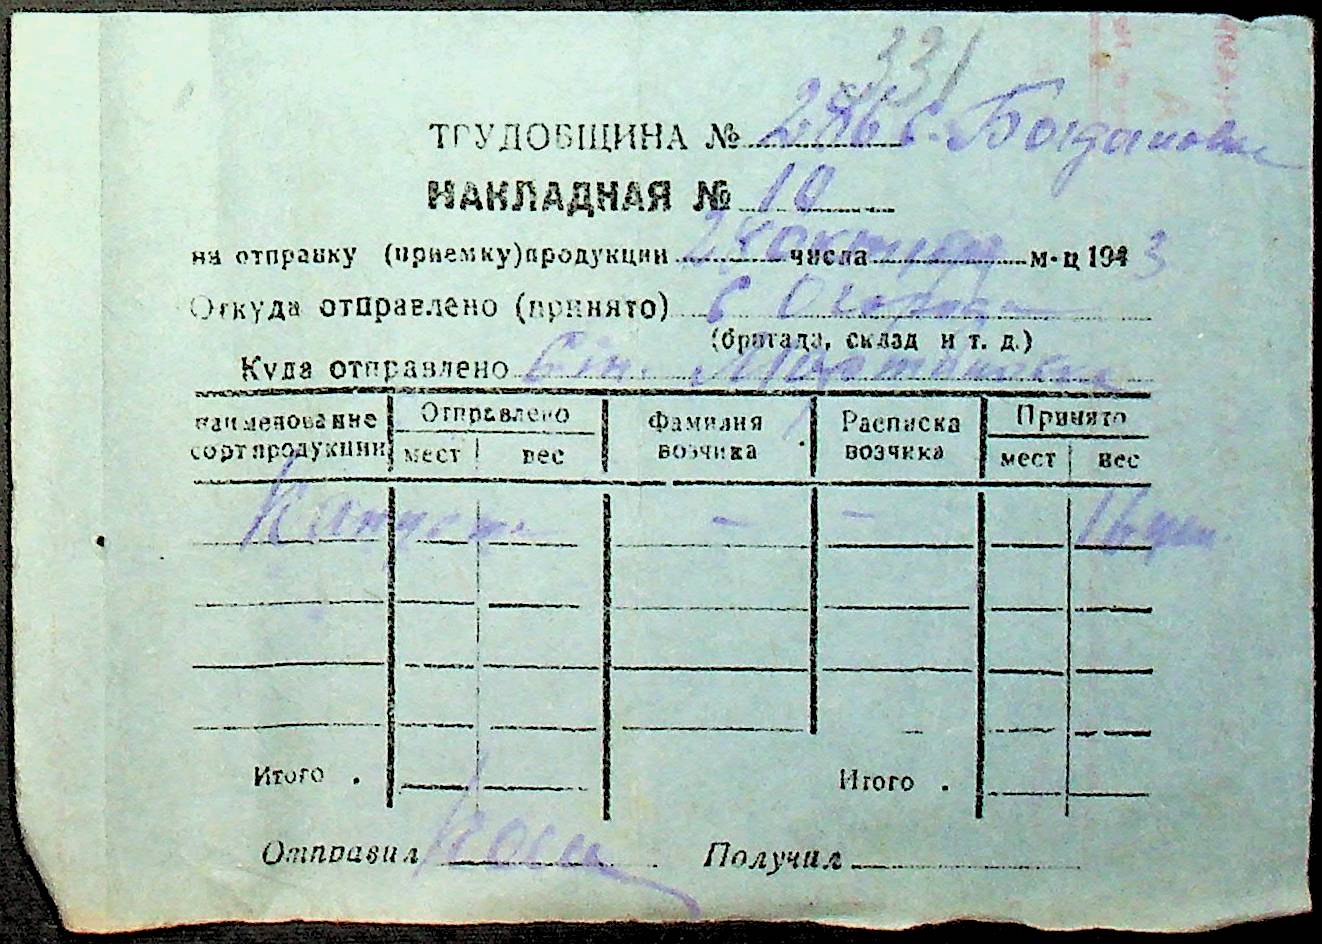 331
ТРУДОБЩИНА № 286 с. Богдановка
НАКЛАДНАЯ № 10
на отправку (приемку) продукции 28 числа октября м-ц 1943
Откуда отправлено (принято) с Огорода
(бригада, склад и т. д.)
Куда отправлено
наименование сорт продукции Отправлено мест вес Фамилия возчика Расписка возчика Принято мест вес
Капуста – – 16 цен.
Итого . Итого .
Отправил Получил